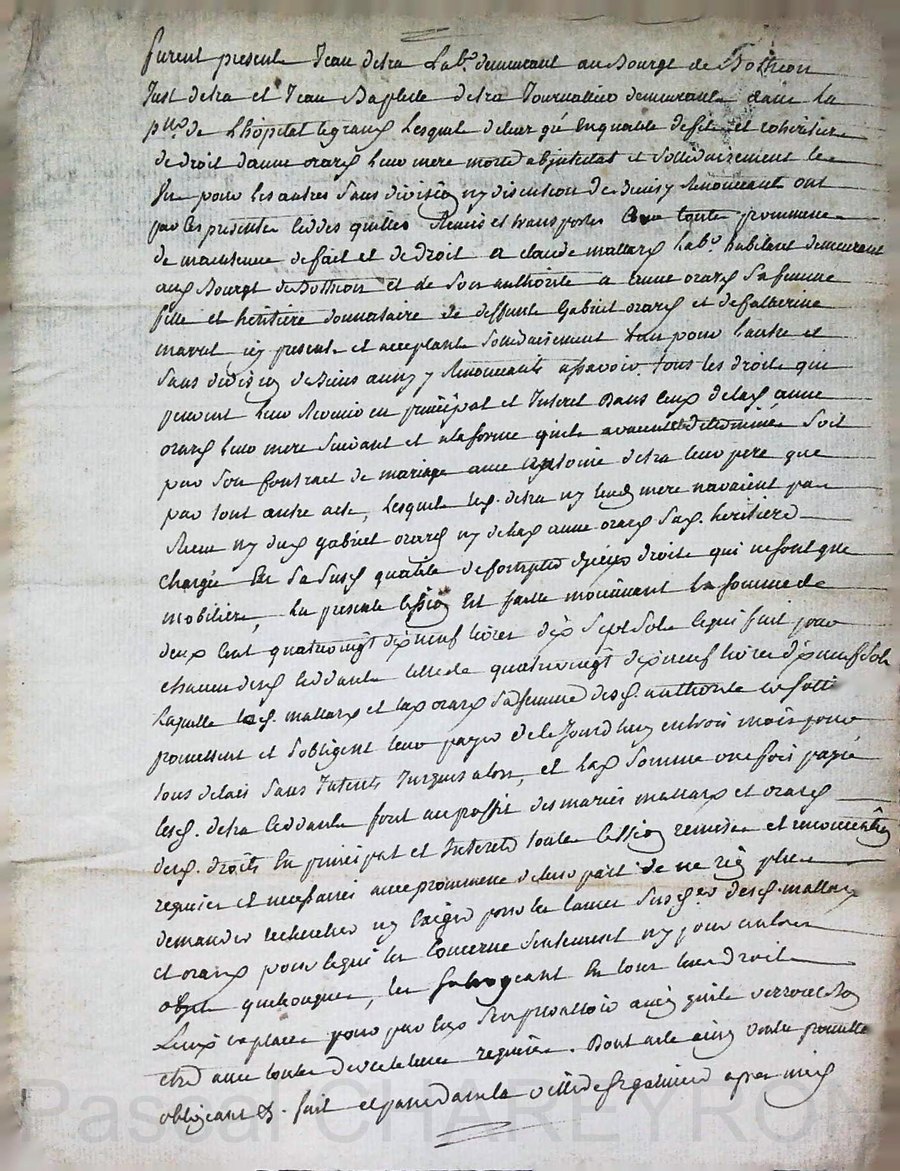 furent present Jean detra Labr demeurant au Bourge de Bothéon
Just detra et Jean Baptiste detra Journallier demeurant dans la
psse de Lhôpital legrand Lesquels deleur gré En qualité defils et cohéritiers
de droit danne orard leur mere morte abjntestat et sollidairement le
Un pour les autres sans division ny discution De biens y Renonceant ont
par les présentes ceddés quittés Remis et transportés avec toute promesse
de maintenue defait et de droit a claude mallard Labr habitant demeurant
aud Bourgt de Bothéon et de son authorité a anne orard sa femme
fille et héritière donnataire de deffunt Gabriel orard et de Catherine
mavet icy present et acceptants solidairement L'un pour l'autre et
sans division de biens aussy y Renonceants assavoir tous les droits qui
peuvent leur Revenir en principal et Interet dans ceux de lad anne
orard leur mere suivant et a la forme quils avaient déterminés soit
par son Contract de mariage avec antoine detra leur père que
par tout autre acte, Lesquels led. detra ny leurd mere navaient pas
Receu ny dud gabriel orard ny de lad anne orard sad. heritiere
chargée En sa susd qualité de droits qui ne sont que
mobiliers, La presente cession Est faitte moiénant la somme de
deux Cent quatrevingt dix neuf livres dix sept sols cequi fait pour
chacun desd ceddants celle de quatrevingt dixneuf livres dixneuf sols
Laquelle led. mallard et lad orard safemme desd authorité
promettent et sobligent leur payer dicLe Jourdhuy en trois mois pour
tous délais sans Interets Jusques alors, et lad somme une fois payée
lesd. detra Ceddants font au proffit des mariés mallard et orard
desd. droits En principal et Interets toutes Cession remises et renonciations
requises et nécessaires avec promesse deleur part de ne rien plus
demander rechercher ny exiger desd. mallard
et orard pour lequi les Concerne seulement ny pour autres
objet quelconques, les subrogeant En tous leurs droits
Lieux et places pour par eux sen prevalloir ainsy quils verront bon
etre avec toutes dues requises. Dont acte ainsy voulu promettes
obligeant &. fait et passé dans la ville de St galmier apres midy
Pascal CHAREYRON